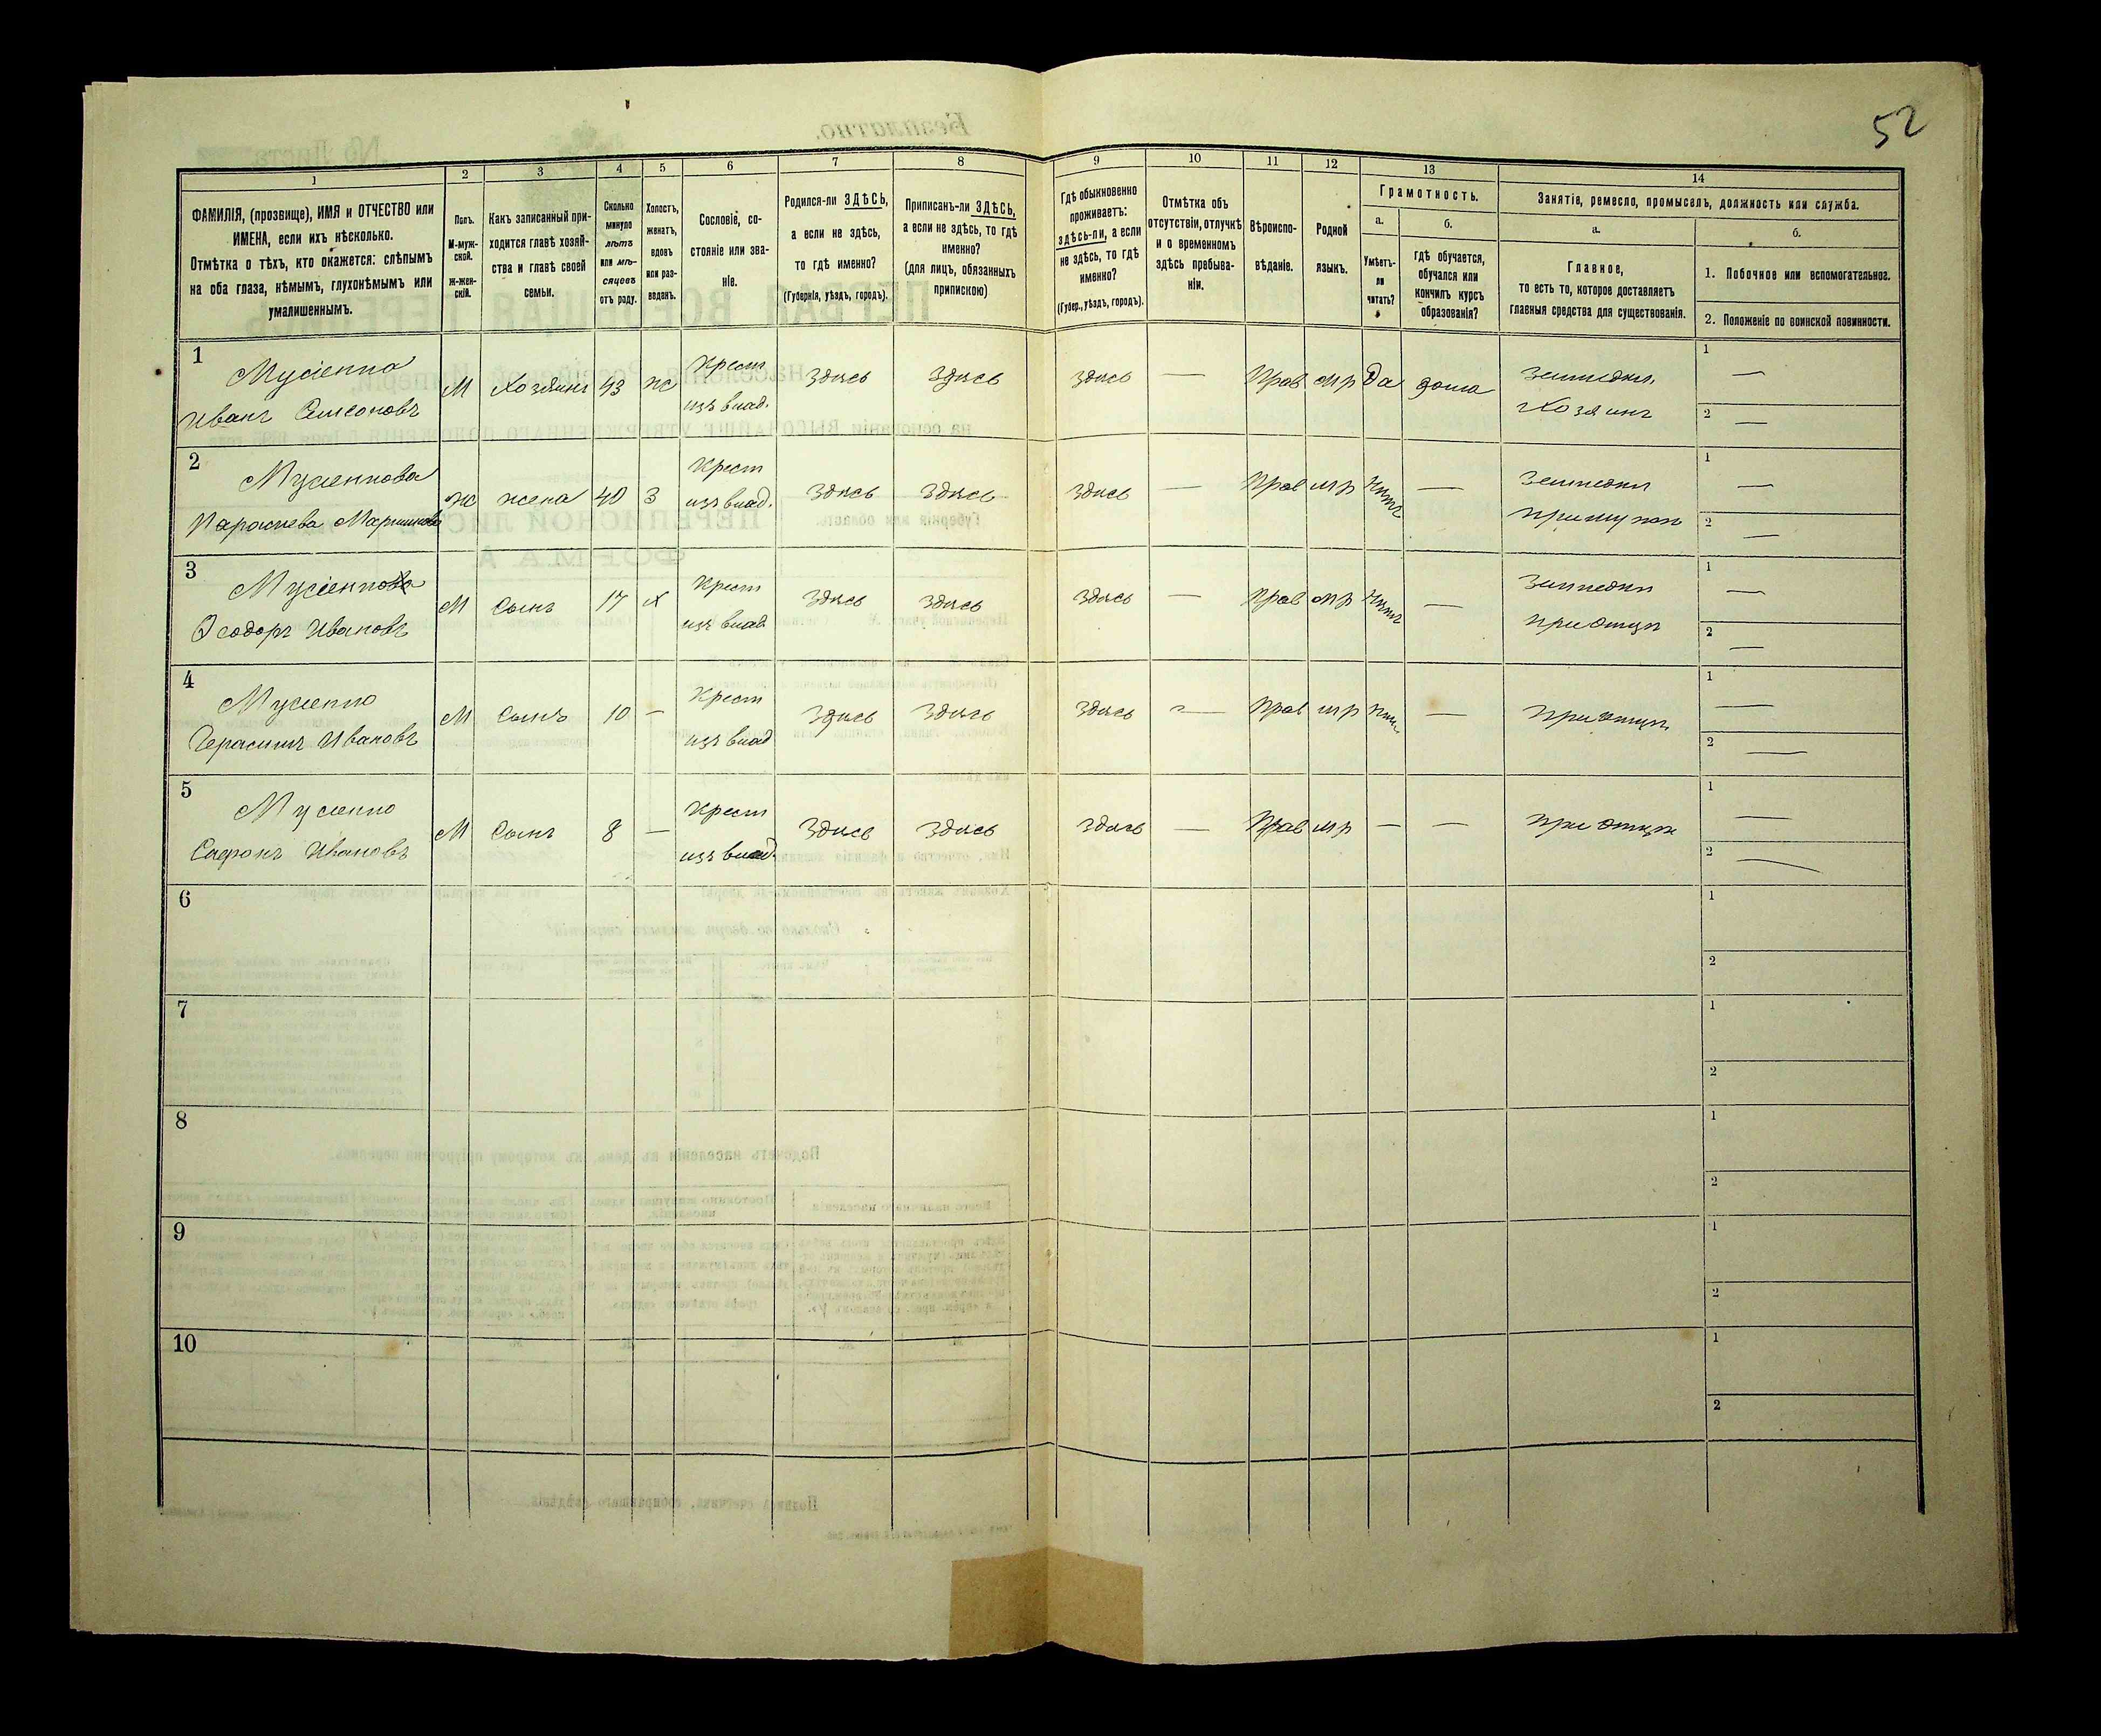 52
1
2
3
4
5
6
7
8
9
10
11
12
13
14
ФАМИЛІЯ, (прозвище), ИМЯ и ОТЧЕСТВО или
ИМЕНА, если ихъ нѣсколько.
Отмѣтка о тѣхъ, кто окажется: слѣпымъ
на оба глаза, нѣмымъ, глухонѣмымъ или
умалишеннымъ.
Полъ.
М-муж-
ской.
ж-жен-
скій.
Какъ записанный при-
ходится главѣ хозяй-
ства и главѣ своей
семьи.
Сколько
минуло
лѣтъ
или мѣ-
сяцевъ
отъ роду.
Холостъ,
женатъ,
вдовъ
или раз-
веденъ.
Сословіе, со-
стояніе или зва-
ніе.
Родился-ли ЗДѢСЬ,
а если не здѣсь,
то гдѣ именно?
(Губернія, уѣздъ, городъ).
Приписанъ-ли ЗДѢСЬ,
а если не здѣсь, то гдѣ
именно?
(для лицъ, обязанныхъ
припискою)
Гдѣ обыкновенно
проживаетъ:
здѣсь-ли, а если
не здѣсь, то гдѣ
именно?
(Губер., уѣздъ, городъ).
Отмѣтка объ
отсутствіи, отлучкѣ
и о временномъ
здѣсь пребыва-
ніи.
Вѣроиспо-
вѣданіе.
Родной
языкъ.
Грамотность.
а.
Умѣетъ-
ли
читать?
б.
гдѣ обучается,
обучался или
кончилъ курсъ
образованія?
Занятіе, ремесло, промыселъ, должность или служба.
а.
Главное,
то есть то, которое доставляетъ
главныя средства для существованія.
б.
1. Побочное или вспомогательное.
2. Положеніе по воинской повинности.
1
Мусіенко
Иванъ Симоновъ
М
Хозяинъ
43
ж
Крест
изъ влад.
Здѣсь
Здѣсь
Здѣсь
—
Прав
мр
Да
дома
Земледѣл.
Хозяинъ
1 —
2 —
2
Мусіенкова
Параскева
Ж
жена
40
З
Крест
изъ влад.
Здѣсь
Здѣсь
Здѣсь
—
Прав
мр
Нѣтъ
—
Земледѣл
при мужѣ
1 —
2 —
3
Мусіенко
Ѳеодоръ Ивановъ
М
Сынъ
17
х
Крест
изъ влад
Здѣсь
Здѣсь
Здѣсь
—
Прав
мр
Нѣтъ
—
Земледѣл
при отцѣ
1 —
2 —
4
Мусіенко
Герасимъ Ивановъ
М
Сынъ
10
—
Крест
изъ влад
Здѣсь
Здѣсь
Здѣсь
—
Прав
мр
—
при отцѣ
1 —
2 —
5
Мусіенко
Сафронъ Ивановъ
М
Сынъ
8
—
Крест
изъ влад.
Здѣсь
Здѣсь
Здѣсь
—
Прав
мр
—
—
при отцѣ
1 —
2 —
6
1
2
7
1
2
8
1
2
9
1
2
10
1
2